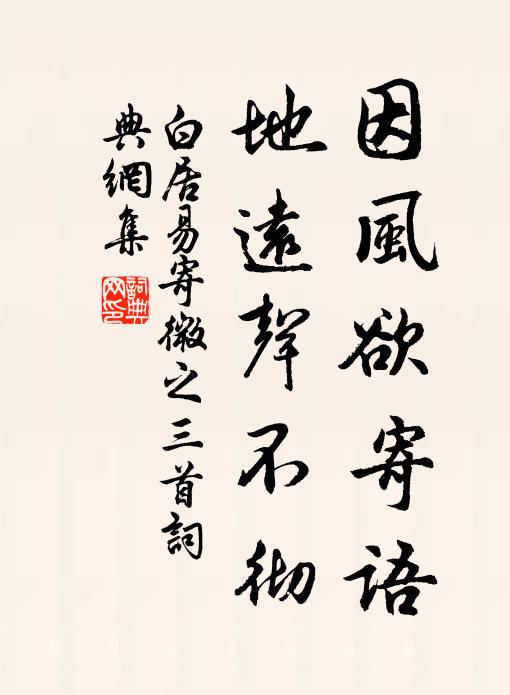 因風欲寄語
地遠聲不彻
白居易寄微之三首詞
典網集
詞典
网印